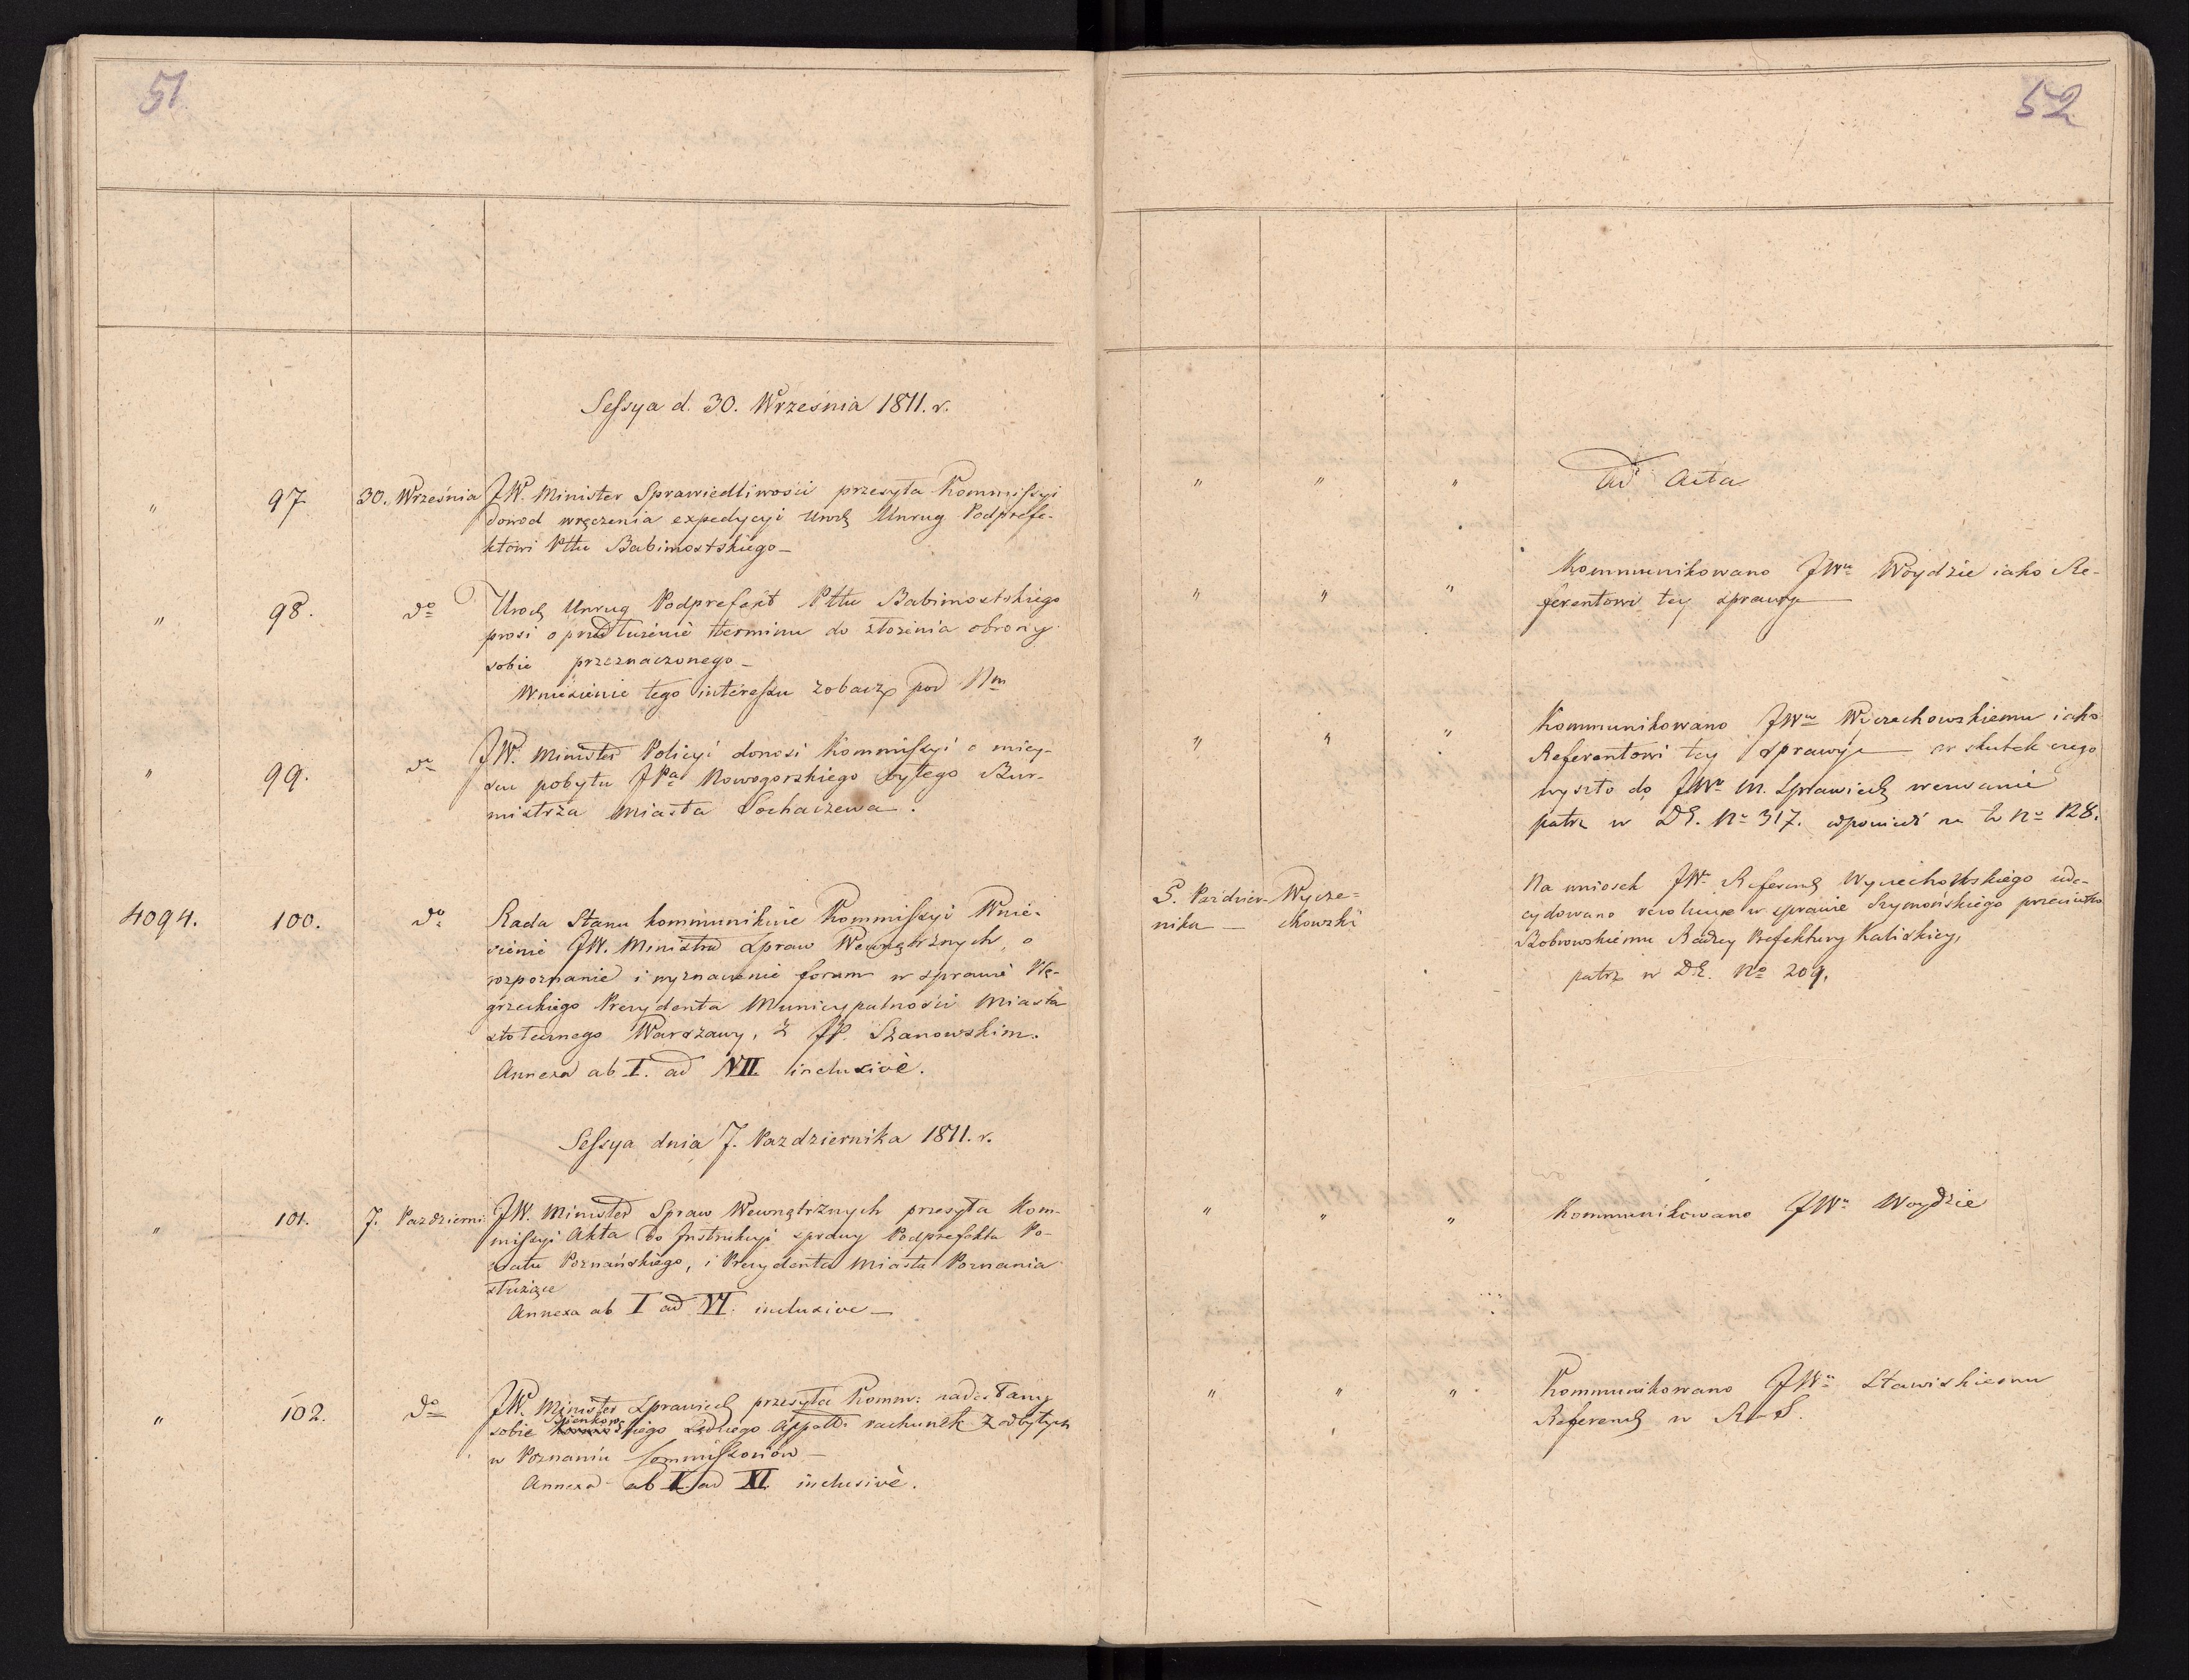 51
Sessya d. 30. Września 1811. r.
" 97 30. Września JW. Minister Sprawiedliwości przesyła Kommissyi
dowod wręczenia expedycyi Urodz Unrug Podprefe-
ktowi Pttu Babimostskiego
" 98. do Urodz Unrug Podprefekt Pttu Babimostskiego
prosi o przedłużenie terminu do złożenia obrony
sobie przeznaczonego
Wniesienie tego interessu zobacz pod Nm
" 99. do JW. Minister Policyi donosi Kommissyi o miey-
scu pobytu JPa Nowogorskiego byłego Bur-
mistrza Miasta Sochaczewa.
4094. 100. do Rada Stanu kommunikuie Kommissyi Wnie-
sienie JW. Ministra Spraw Wewnętrznych, o
rozpoznanie i wyznaczenie forum w sprawie Wę-
grzeckiego Prezydenta Municypalności Miasta
stołecznego Warszawy, z JP. Szanowskim.
Annexa ab I. ad VII. inclusivè.
Sessya dnia 7. Pazdziernika 1811. r.
" 101. 7. Pazdzierni: JW. Minister Spraw Wewnętrznych przesyła Kom-
missyi Akta do Instrukcyi sprawy Podprefekta Po-
wiatu Poznańskiego, i Prezydenta Miasta Poznania
służące
Annexa ab I ad VI. inclusive
" 102. do JW. Minister Sprawiedz przesyła Komm: nadesłany
Sienkows
sobie kiego Sędziego Appell: rachunek z odbytych
w Poznaniu Commissoriow
Annexa ab I. ad XI. inclusivè.
52
" " " Ad Acta
" " " Kommunikowano JWu Woydzie iako Re-
ferentowi tey sprawy
" " " Kommunikowano JWu Wyczechowskiemu iako
Referentowi tey sprawy w skutek czego
wyszło do JWo M. Sprawiedz wezwanie
patrz w DE. No 317. odpowiedź na to No 128.
5. Pazdzier- Wycze= Na wniosek JWo Referendz Wyczechowskiego zde-
nika chowski cydowano rezolucye w sprawie Szymońskiego przeciwko
Bobrowskiemu Radzcy Prefektury Kaliskiey,
patrz w DE. No 209.
" " " Kommunikowano JWu Woydzie
" " " Kommunikowano JWu Stawiskiemu
Referendz w R. S.